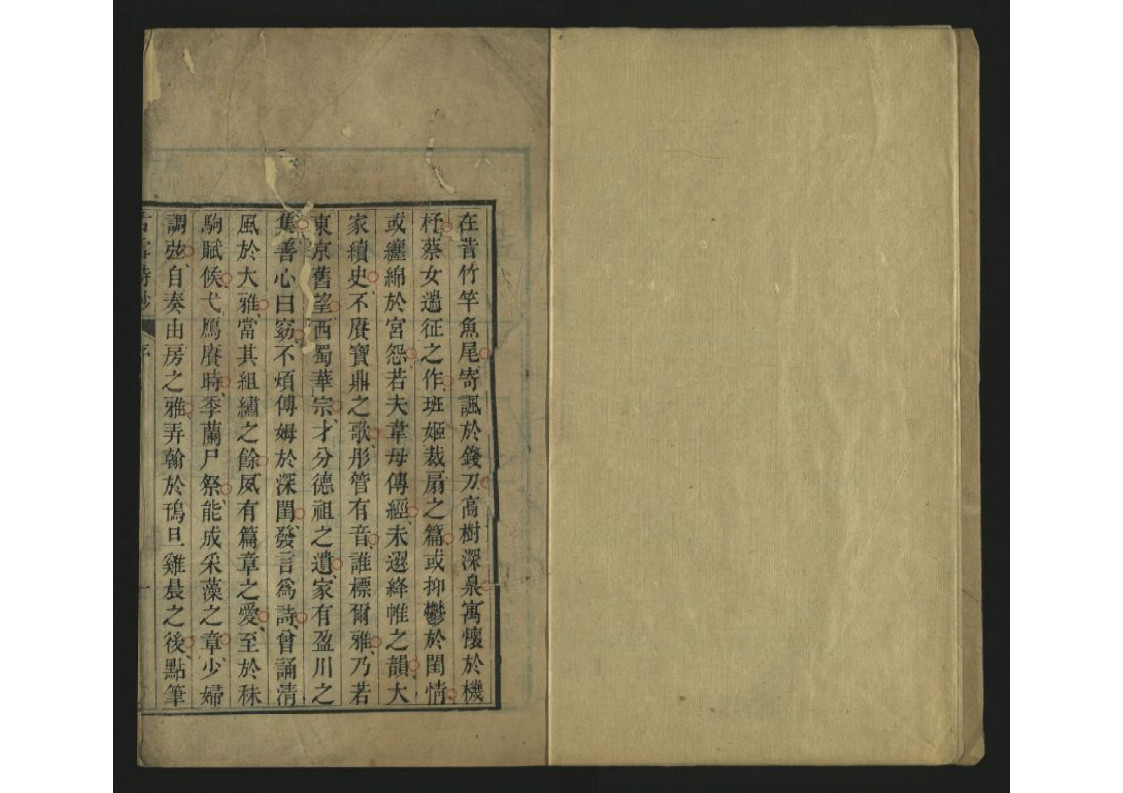 在昔竹竿魚尾寄諷於錢刀高樹深泉寓懷於機
杼蔡女遄征之作班姬裁扇之篇或抑鬱於閨情
或纏綿於宮怨若夫韋母傳經未選絳帷之韻大
家續史不賡寶鼎之歌彤管有音誰標爾雅乃若
東京舊望西蜀華宗才分德祖之遺家有盈川之
集善心曰窈不煩傅姆於深閨發言爲詩曾誦清
風於大雅當其組繡之餘夙有篇章之愛至於秣
駒賦候弋鴈賡時季蘭尸祭能成采藻之章少婦
調弦自奏由房之雅弄翰於鳲旦雞晨之後點筆
古雪詩鈔
序
一